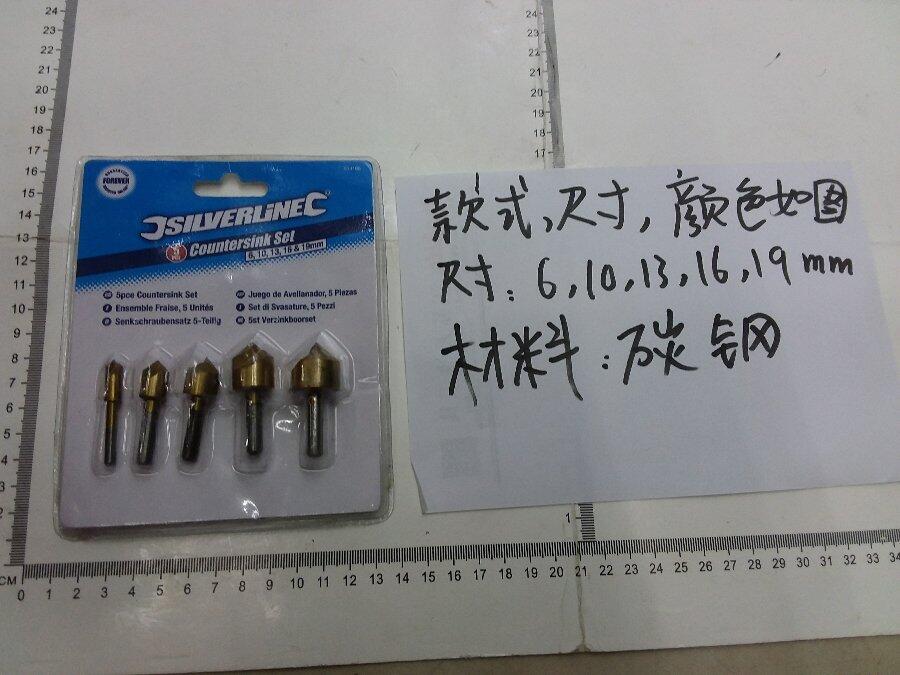 GUARANTEED
FOREVER
SILVERLINE
Countersink Set
6, 10, 13, 16 & 19mm
5pce Countersink Set
Ensemble Fraise, 5 Unités
Senkschraubensatz 5-Teilig
Juego de Avellanador, 5 Piezas
Set di Svasature, 5 Pezzi
5st Verzinkboorset
款式、尺寸,颜色如图
尺寸:6,10,13,16,19mm
材料:碳钢
24
23
22
21
20
19
18
17
16
15
14
13
12
11
10
9
8
7
6
5
4
3
2
24
23
22
21
20
19
18
17
1
CM
0 1 2 3 4 5 6 7 8 9 10 11 12 13 14 15 16 17 18 19 20 21 22 23 24 25 26 27 28 29 30 31 32 33 34